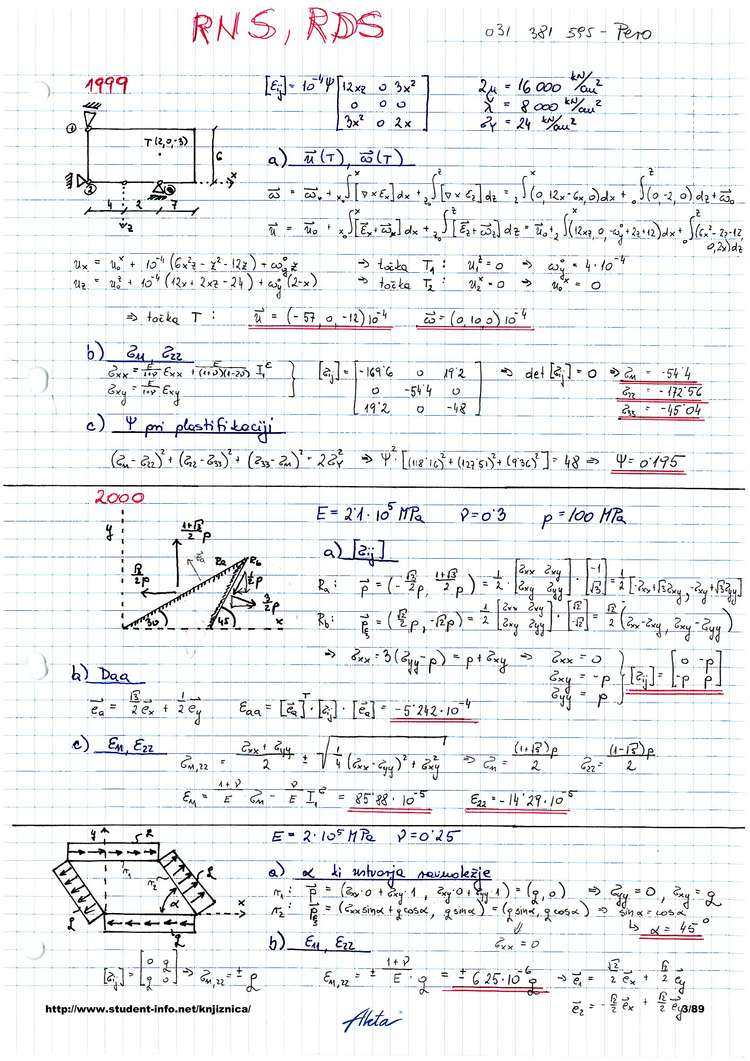 RNS, RDS
031 381 595 - Pero
1999
[εij] = 10⁻⁴ψ [12xz 0 3x² ; 0 0 0 ; 3x² 0 2x]
2μ = 16 000 kN/cm²
λ = 8 000 kN/cm²
σY = 24 kN/cm²
T (2,0,-3)
1
2
3
6
x
4 2 7
z
a) u⃗(T), ω⃗(T)
ω⃗ = ω⃗₀ + ∫[∇×εx]dx + ∫[∇×εz]dz = ∫(0, 12x-6x, 0)dx + ∫(0,-2,0)dz + ω⃗₀
u⃗ = u⃗₀ + ∫[ε⃗x+ω⃗x]dx + ∫[ε⃗z+ω⃗z]dz = u⃗₀ + ∫(12xz, 0, -ω₀ʸ+2z+12)dx + ∫(6x²-2z-12, 0, 2x)dz
ux = u₀ˣ + 10⁻⁴(6x²z - z² - 12z) + ω₀ʸ z ⇒ točka T₁: u₁ᶻ = 0 ⇒ ωʸ = 4·10⁻⁴
uz = u₀ᶻ + 10⁻⁴(12x + 2xz - 24) + ω₀ʸ(2-x) ⇒ točka T₂: u₂ˣ = 0 ⇒ u₀ˣ = 0
⇒ točka T: u⃗ = (-57, 0, -12)10⁻⁴ ω⃗ = (0, 10, 0)10⁻⁴
b) σ11, σ22
σxx = E/(1+ν) εxx + E/((1+ν)(1-2ν)) I₁ᵋ
σxy = E/(1+ν) εxy
[σij] = [-169'6 0 19'2 ; 0 -54'4 0 ; 19'2 0 -48] ⇒ det[σij] = 0 ⇒ σ11 = -54'4
σ22 = -172'56
σ33 = -45'04
c) ψ pri plastifikaciji
(σ11-σ22)² + (σ22-σ33)² + (σ33-σ11)² = 2σY² ⇒ ψ²·[(118'16)² + (127'51)² + (9'36)²] = 48 ⇒ ψ = 0'195
2000
E = 2'1·10⁵ MPa ν = 0'3 p = 100 MPa
y
(1+√3)/2 p
e⃗a
Ra
Rb
√3/2 p
30
45
x
a) [σij]
Ra: p⃗ = (-√3/2 p, (1+√3)/2 p) = 1/2·[σxx σxy ; σxy σyy]·[-1 ; √3] = 1/2[-σxx+√3σxy, -σxy+√3σyy]
Rb: p⃗ = (√2/2 p, -√2p) = 1/2[σxx σxy ; σxy σyy]·[√2 ; -√2] = √2/2(σxx-σxy, σxy-σyy)
⇒ σxx = 3(σyy-p) = p+σxy ⇒ σxx = 0
σxy = -p
σyy = p
[σij] = [0 -p ; -p p]
b) Daa
e⃗a = √3/2 e⃗x + 1/2 e⃗y εaa = [e⃗a]ᵀ·[σij]·[e⃗a] = -5'242·10⁻⁴
c) ε11, ε22
σ11,22 = (σxx+σyy)/2 ± √(1/4(σxx-σyy)² + σxy²) ⇒ σ11 = (1+√5)p/2 σ22 = (1-√5)p/2
ε11 = (1+ν)/E σ11 - ν/E I₁ᵟ = 85'88·10⁻⁵ ε22 = -14'29·10⁻⁵
E = 2·10⁵ MPa ν = 0'25
y
q
n₁
n₂
q
α
x
q
q
a) α ki ustvarja ravnotežje
n₁: p⃗ = (σxx·0+σxy·1, σxy·0+σyy·1) = (q,0) ⇒ σyy = 0, σxy = q
n₂: p⃗ = (σxx sinα + q cosα, q sinα) = (q sinα, q cosα) ⇒ sinα = cosα
σxx = 0
↳ α = 45°
b) ε11, ε22
[σij] = [0 q ; q 0] ⇒ σ11,22 = ± q
ε11,22 = ± (1+ν)/E · q = ± 6'25·10⁻⁶ q ⇒ e⃗₁ = √2/2 e⃗x + √2/2 e⃗y
e⃗₂ = -√2/2 e⃗x + √2/2 e⃗y
http://www.student-info.net/knjiznica/
Akta
3/89